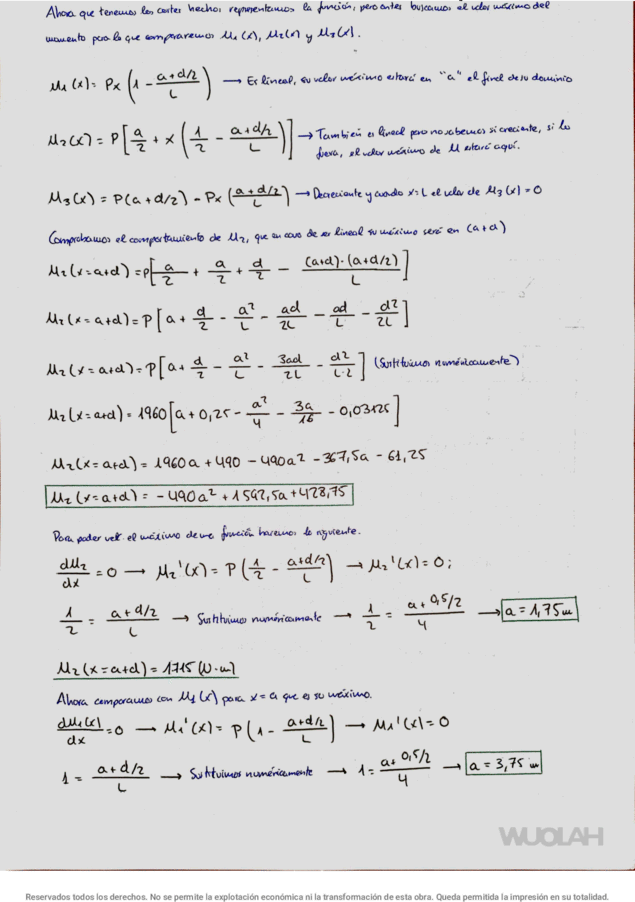 Ahora que tenemos los cortes hechos representamos la función, pero antes buscamos el valor máximo del
momento para lo que compararemos M₁(x), M₂(x) y M₃(x).
M₁(x) = Px (1 - (a+d/2)/L) → Es lineal, su valor máximo estará en "a" el final de su dominio
M₂(x) = P[a/2 + x(1/2 - (a+d/2)/L)] → También es lineal pero no sabemos si creciente, si lo
fuera, el valor máximo de M estará aquí.
M₃(x) = P(a+d/2) - Px((a+d/2)/L) → Decreciente y cuando x=L el valor de M₃(x) = 0
Comprobamos el comportamiento de M₂, que en caso de ser lineal su máximo será en (a+d)
M₂(x=a+d) = P[a/2 + a/2 + d/2 - (a+d)·(a+d/2)/L]
M₂(x=a+d) = P[a + d/2 - a²/L - ad/2L - ad/L - d²/2L]
M₂(x=a+d) = P[a + d/2 - a²/L - 3ad/2L - d²/L·2] (Sustituimos numéricamente)
M₂(x=a+d) = 1960[a + 0,25 - a²/4 - 3a/16 - 0,03125]
M₂(x=a+d) = 1960a + 490 - 490a² - 367,5a - 61,25
M₂(x=a+d) = -490a² + 1592,5a + 428,75
Para poder ver el máximo de una función haremos lo siguiente.
dM₂/dx = 0 → M₂'(x) = P(1/2 - (a+d/2)/L) → M₂'(x) = 0;
1/2 = (a+d/2)/L → Sustituimos numéricamente → 1/2 = (a+0,5/2)/4 → a = 1,75 m
M₂(x=a+d) = 1715 (N·m)
Ahora comparamos con M₁(x) para x=a que es su máximo.
dM₁(x)/dx = 0 → M₁'(x) = P(1 - (a+d/2)/L) → M₁'(x) = 0
1 = (a+d/2)/L → Sustituimos numéricamente → 1 = (a+0,5/2)/4 → a = 3,75 m
WUOLAH
Reservados todos los derechos. No se permite la explotación económica ni la transformación de esta obra. Queda permitida la impresión en su totalidad.